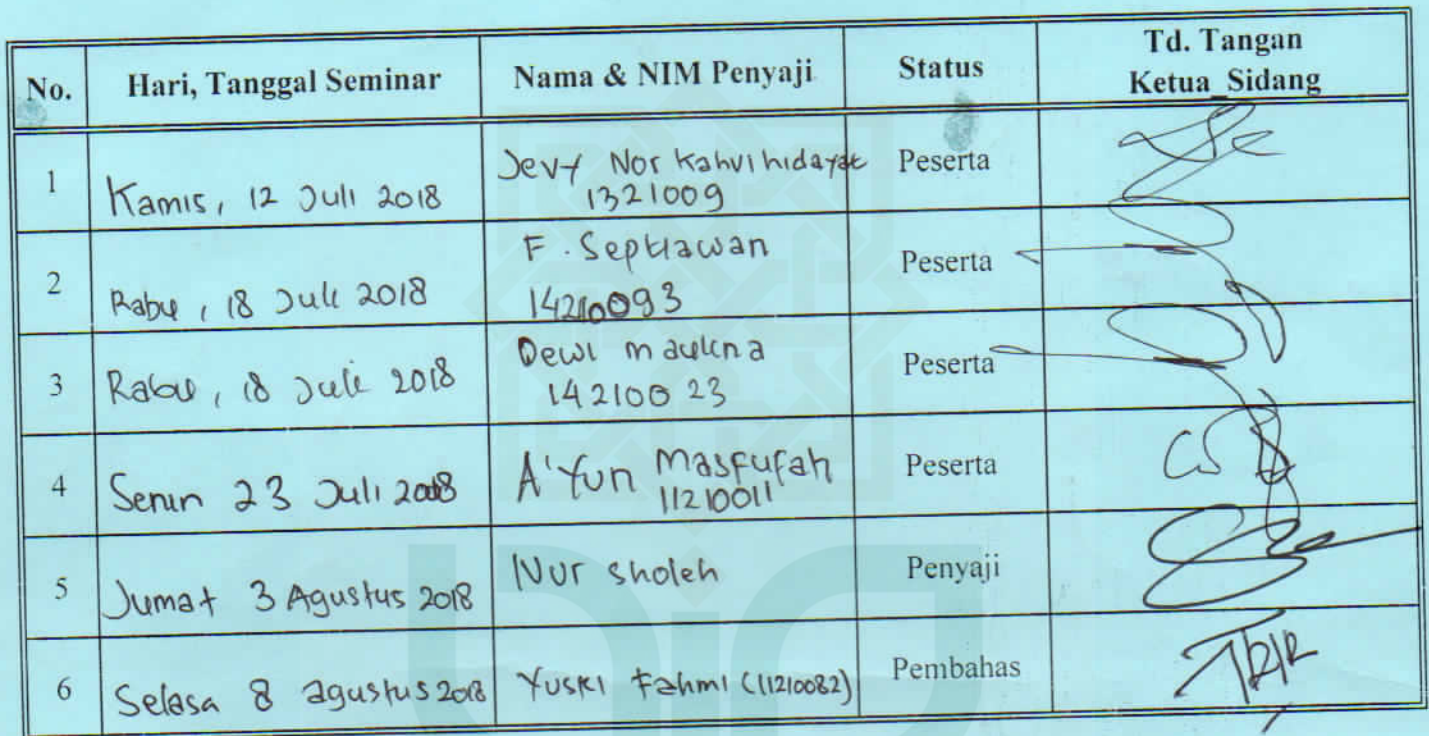 No. Hari, Tanggal Seminar Nama & NIM Penyaji Status Td. Tangan
Ketua Sidang
1 Kamis, 12 Juli 2018 Jevy Nor Kahvihidayat Peserta
1321009
2 Rabu, 18 Juli 2018 F. Septiawan Peserta
14210093
3 Rabu, 18 Juli 2018 Dewi maulina Peserta
14210023
4 Senin 23 Juli 2018 A'yun Masfufah Peserta
11210011
5 Jumat 3 Agustus 2018 Nur sholeh Penyaji
6 Selasa 8 agustus 2018 Yuski fahmi (11210082) Pembahas